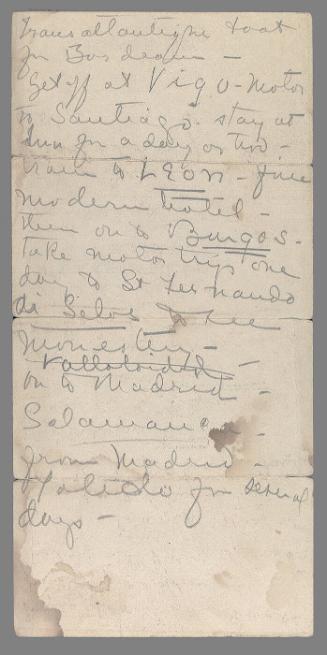 Transatlantique boat
for Bordeaux —
Get off at Vigo - motor
to Santiago. stay at
Inn for a day or two -
train to LEON - fine
modern hotel -
then on to Burgos.
take motor trip one
day to St Fernando
de Silos to see
Monestery -
Valladolid
on to Madrid -
Salaman
from Madrid -
Toledo for several
days -